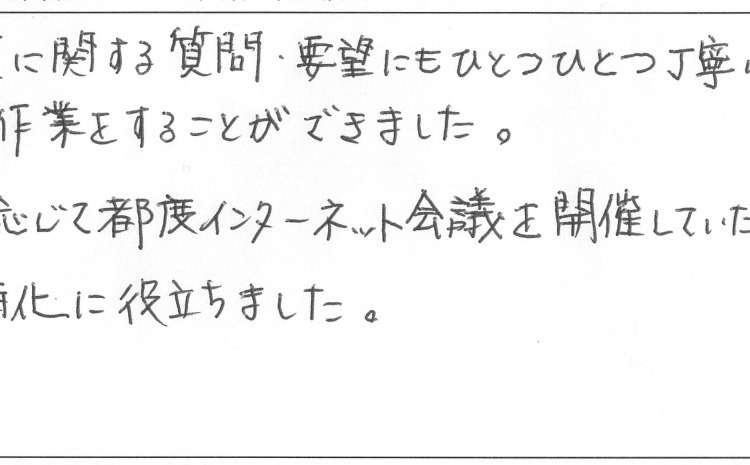 に関する質問・要望にもひとつひとつ丁寧
作業をすることができました。
応じて都度インターネット会議を開催していた
化に役立ちました。